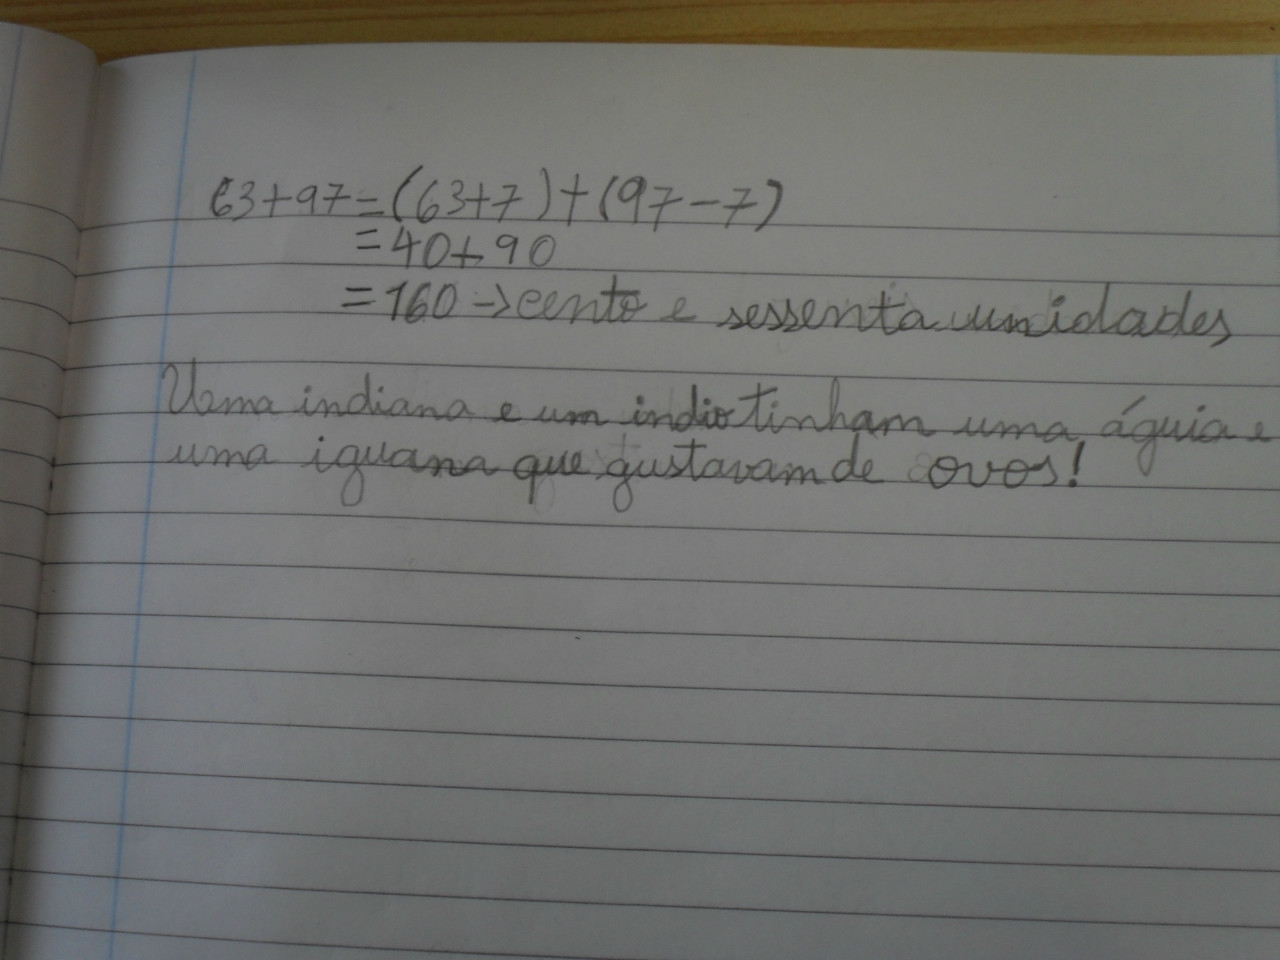 63+97=(63+7)+(97-7)
=40+90
=160→cento e sessenta unidades
Uma indiana e um indio tinham uma águia e
uma iguana que gustavam de ovos!